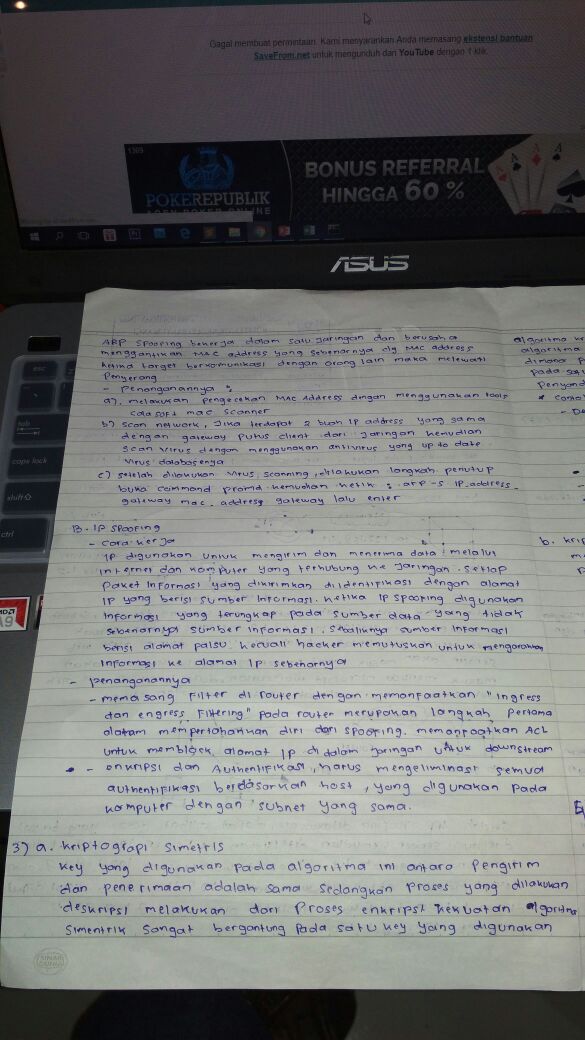 Gagal membuat permintaan. Kami menyarankan Anda memasang ekstensi bantuan
SaveFrom.net untuk mengunduh dari YouTube dengan 1 klik.
1369
POKEREPUBLIK
AGEN POKER ONLINE
BONUS REFERRAL
HINGGA 60 %
ASUS
esc
tab
caps lock
shift
ctrl
AMD
A9
ARP Spoofing bekerja dalam satu jaringan dan berusaha
menggantikan MAC address yang sebenarnya dg MAC address
ketika target berkomunikasi dengan orang lain maka melewati
Penyerang
- Penanganannya :
a), melakukan pengecekan MAC Address dngan menggunakan tools
colasoft mac scanner
b) scan network, Jika terdapat 2 buah IP address yang sama
dengan gateway putus client dari jaringan kemudian
scan virus dengan menggunakan antivirus yang up to date
virus databasenya
c) setelah dilakukan virus scanning, dilakukan langkah penutup
buka command promd kemudian ketik : arp -s ip_address_
gateway mac_address gateway lalu enter
B. IP Spoofing
- cara kerja
IP digunakan untuk mengirim dan menerima data melalui
internet dan komputer yang terhubung ke jaringan. Setiap
Paket informasi yang dikirimkan diidentifikasi dengan alamat
IP yang berisi sumber informasi. ketika IP spoofing digunakan
informasi yang terungkap pada sumber data yang tidak
sebenarnya sumber informasi, sebaliknya sumber informasi
berisi alamat palsu kecuali hacker memutuskan untuk mengarahkan
informasi ke alamat IP sebenarnya
- Penanganannya
- memasang Filter di router dengan memanfaatkan "ingress
dan engress Filtering" pada router merupakan langkah pertama
dalam mempertahankan diri dari spoofing. memanfaatkan ACL
untuk memblock alamat IP di dalam jaringan untuk downstream
- enkripsi dan Authentifikasi, harus mengeliminasi semua
authentifikasi berdasarkan host, yang digunakan pada
komputer dengan subnet yang sama.
3) a. kriptografi simetris
key yang digunakan pada algoritma ini antara pengirim
dan penerimaan adalah sama sedangkan proses yang dilakukan
deskripsi melakukan dari proses enkripsi kekuatan algoritma
simentrik sangat bergantung pada satu key yang digunakan
algoritma
dimana
pada
b. krip
SINAR
DUNIA